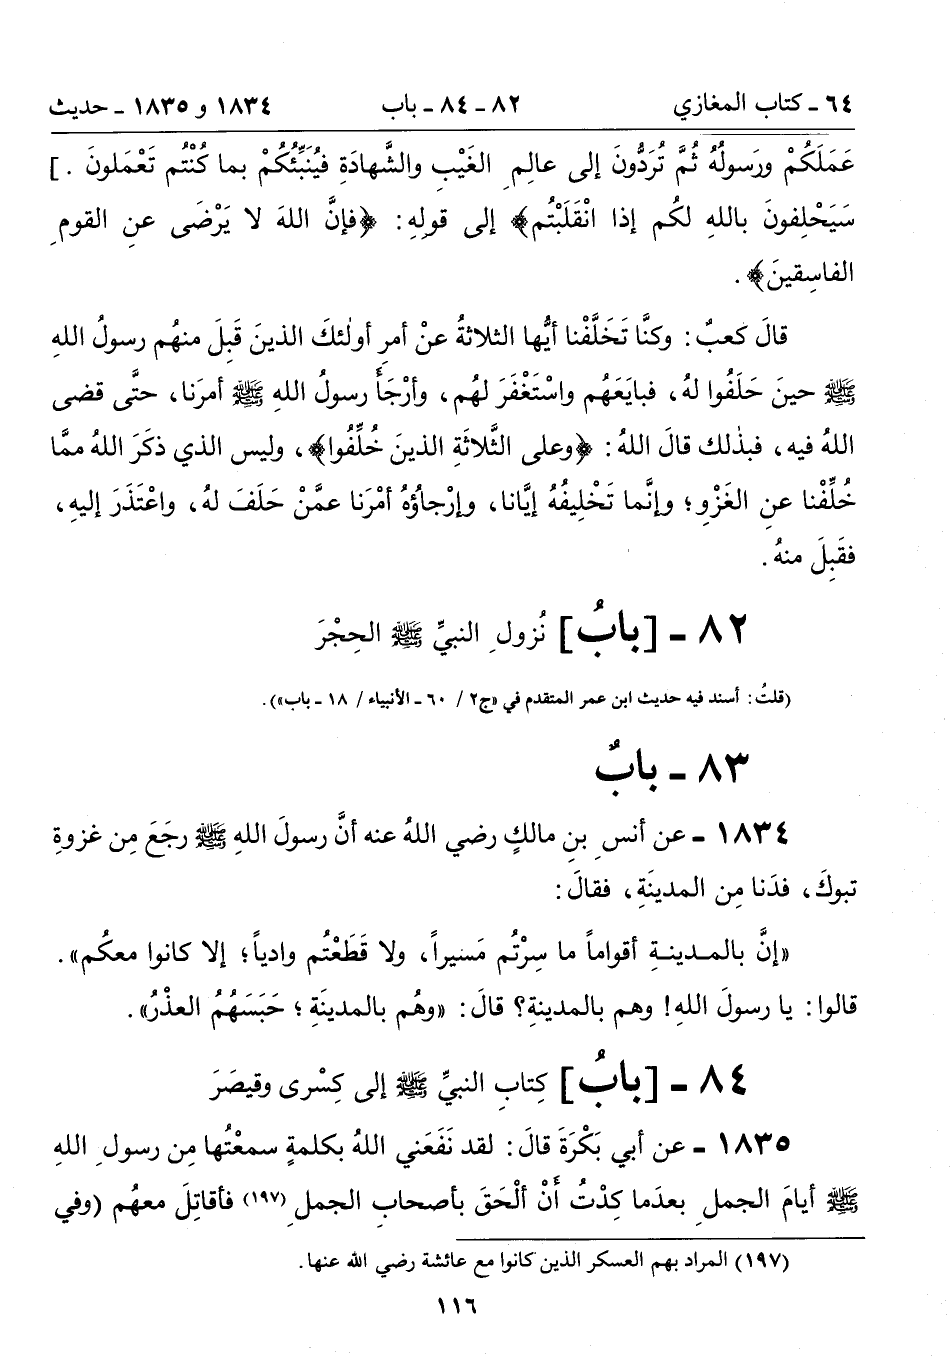 ٦٤ ـ كتاب المغازي ٨٢ ـ ٨٤ ـ باب ١٨٣٤ و ١٨٣٥ ـ حديث
عَمَلَكُمْ ورَسولُهُ ثُمَّ تُرَدُّونَ إلى عالِمِ الغَيْبِ والشَّهادَةِ فيُنَبِّئُكُمْ بما كُنْتُم تَعْمَلونَ . ]
سَيَحْلِفونَ باللهِ لكُم إذا انْقَلَبْتُم﴾ إلى قولِهِ: ﴿فإنَّ اللهَ لا يَرْضَى عنِ القومِ
الفاسِقينَ﴾ .
قالَ كَعبٌ: وكنَّا تَخَلَّفْنا أيُّها الثلاثةُ عنْ أمرِ أولٰئكَ الذينَ قَبِلَ منهُم رسولُ اللهِ
ﷺ حينَ حَلَفُوا لهُ، فبايَعَهُم واسْتَغْفَرَ لهُم، وأرْجَأَ رسولُ اللهِ ﷺ أمرَنا، حتَّى قضى
اللهُ فيه، فبذٰلك قالَ اللهُ: ﴿وعلى الثَّلاثَةِ الذينَ خُلِّفُوا﴾، وليس الذي ذكَرَ اللهُ ممَّا
خُلِّفْنا عنِ الغَزْوِ؛ وإنَّما تَخْلِيفُهُ إيَّانا، وإرْجاؤُهُ أمْرَنا عمَّنْ حَلَفَ لهُ، واعْتَذَرَ إليهِ،
فقَبِلَ منهُ.
٨٢ ـ [بابُ] نُزولِ النبيِّ ﷺ الحِجْرَ
(قلتُ: أسند فيه حديث ابن عمر المتقدم في «ج٢ / ٦٠ ـ الأنبياء / ١٨ ـ باب»).
٨٣ ـ بابٌ
١٨٣٤ ـ عن أنسِ بنِ مالكٍ رضي اللهُ عنه أنَّ رسولَ اللهِ ﷺ رجَعَ مِن غزوةِ
تبوكَ، فدَنا مِن المدينَةِ، فقالَ:
«إنَّ بالمـدينـةِ أقواماً ما سِرْتُم مَسيراً، ولا قَطَعْتُم وادياً؛ إلا كانوا معكُم».
قالوا: يا رسولَ اللهِ! وهم بالمدينةِ؟ قالَ: «وهُم بالمدينَةِ؛ حَبَسَهُمُ العذْرُ».
٨٤ ـ [بابُ] كِتابِ النبيِّ ﷺ إلى كِسْرى وقيصَرَ
١٨٣٥ ـ عن أبي بَكْرَةَ قالَ: لقد نَفَعَني اللهُ بكلمةٍ سمعْتُها مِن رسولِ اللهِ
ﷺ أيامَ الجملِ بعدَما كِدْتُ أَنْ ألْحَقَ بأصحابِ الجملِ (١٩٧) فأقاتِلَ معهُم (وفي
(١٩٧) المراد بهم العسكر الذين كانوا مع عائشة رضي الله عنها.
١١٦